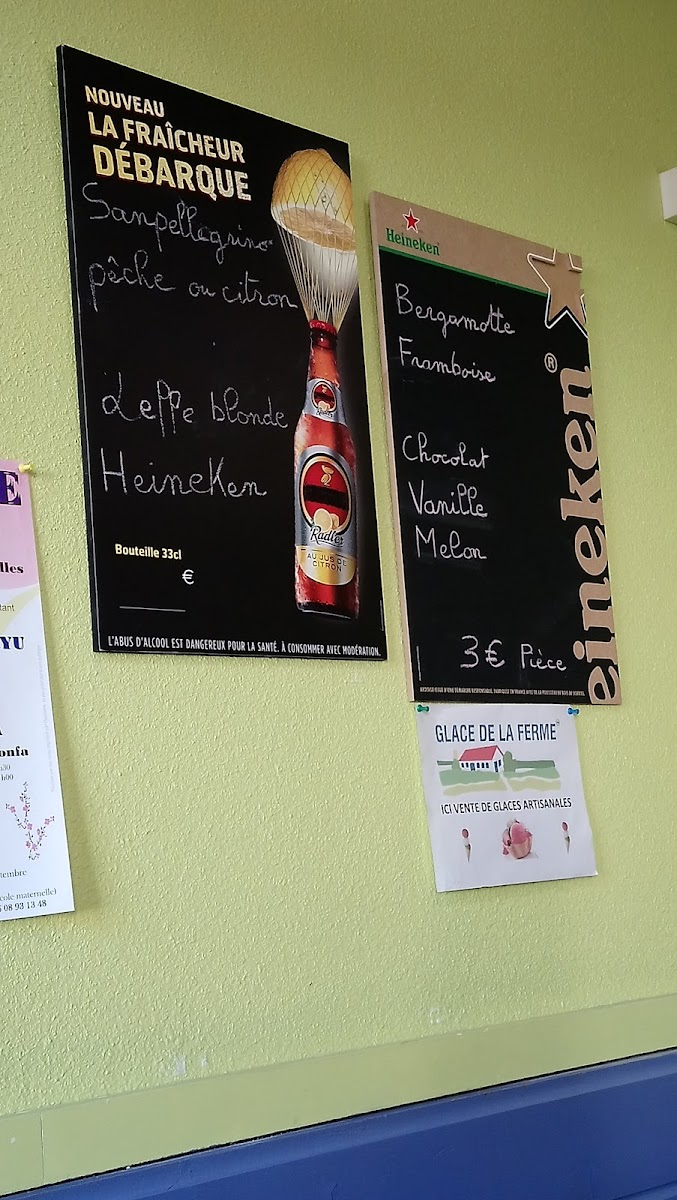 NOUVEAU
LA FRAÎCHEUR
DÉBARQUE
Sanpellegrino
pêche ou citron
Leffe blonde
HeineKen
Radler
Radler
AU JUS DE
CITRON
Bouteille 33cl
€
L'ABUS D'ALCOOL EST DANGEREUX POUR LA SANTÉ. À CONSOMMER AVEC MODÉRATION.
Heineken
Bergamotte
Framboise
Chocolat
Vanille
Melon
3€ Pièce
eineken®
GLACE DE LA FERME
ICI VENTE DE GLACES ARTISANALES
E
lles
tant
YU
A
onfa
h30
h00
tembre
cole maternelle)
08 93 13 48